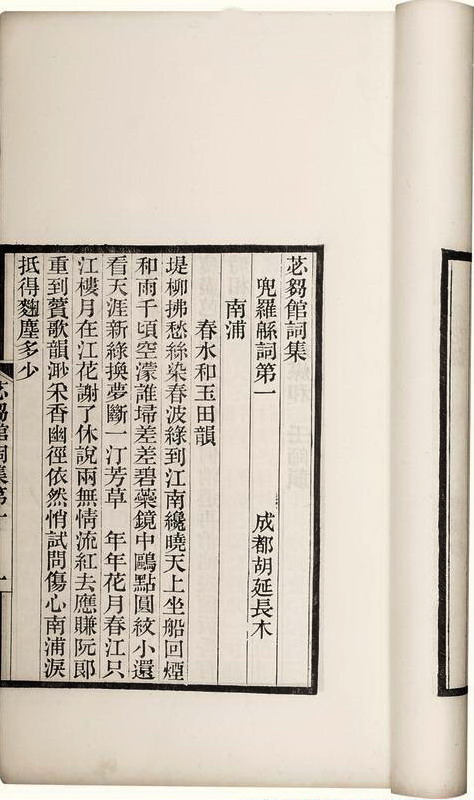 苾芻館詞集
兜羅緜詞第一
成都胡延長木
南浦
春水和玉田韻
堤柳拂愁絲染春波綠到江南纔曉天上坐船回煙
和雨千頃空濛誰埽差差碧藥鏡中鷗點圓紋小還
看天涯新綠換夢斷一汀芳草　年年花月春江只
江樓月在江花謝了休說兩無情流紅去應賺阮郎
重到鬢歌韻渺采香幽徑依然悄試問傷心南浦淚
抵得麴塵多少
苾芻館詞集第一
一